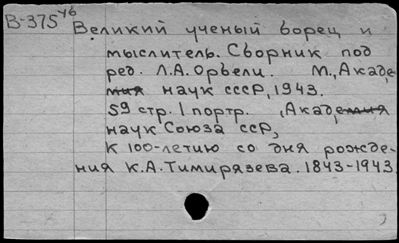 В-375 уб
Великий ученый борец и
мыслитель. Сборник под
ред. Л.А. Орбели. М., Акаде
мия наук СССР, 1943.
59 стр. 1 портр. (Академия
наук Союза ССР,
К 100-летию со дня рожде-
ния К.А. Тимирязева. 1843-1943.